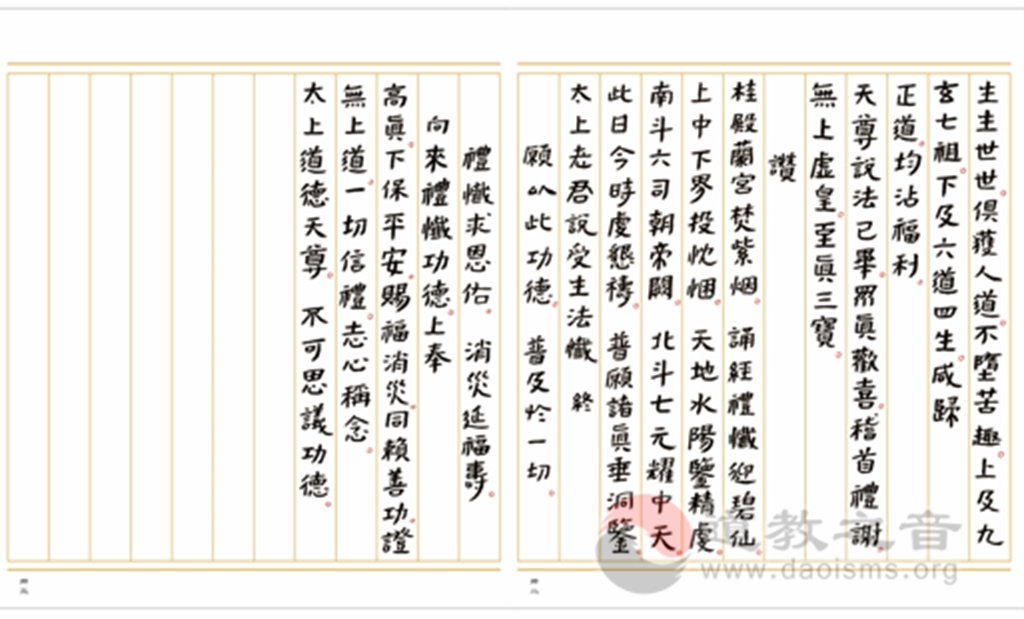 生生世世俱獲人道不墮苦趣上及九
玄七祖下及六道四生咸歸
正道均沾福利
天尊說法已畢眾眞歡喜稽首禮謝
無上虛皇至眞三寶
讚
桂殿蘭宮焚紫烟 誦經禮懺迎碧仙
上中下界投忱悃 天地水陽鑒精虔
南斗六司朝帝闕 北斗七元耀中天
此日今時虔懇禱 普願諸眞垂洞鑒
太上老君說受生法懺 終
願以此功德 普及於一切
禮懺求恩佑 消災延福壽
向來禮懺功德上奉
高眞下保平安賜福消災同賴善功證
無上道一切信禮志心稱念
太上道德天尊 不可思議功德
道教之音
www.daoisms.org